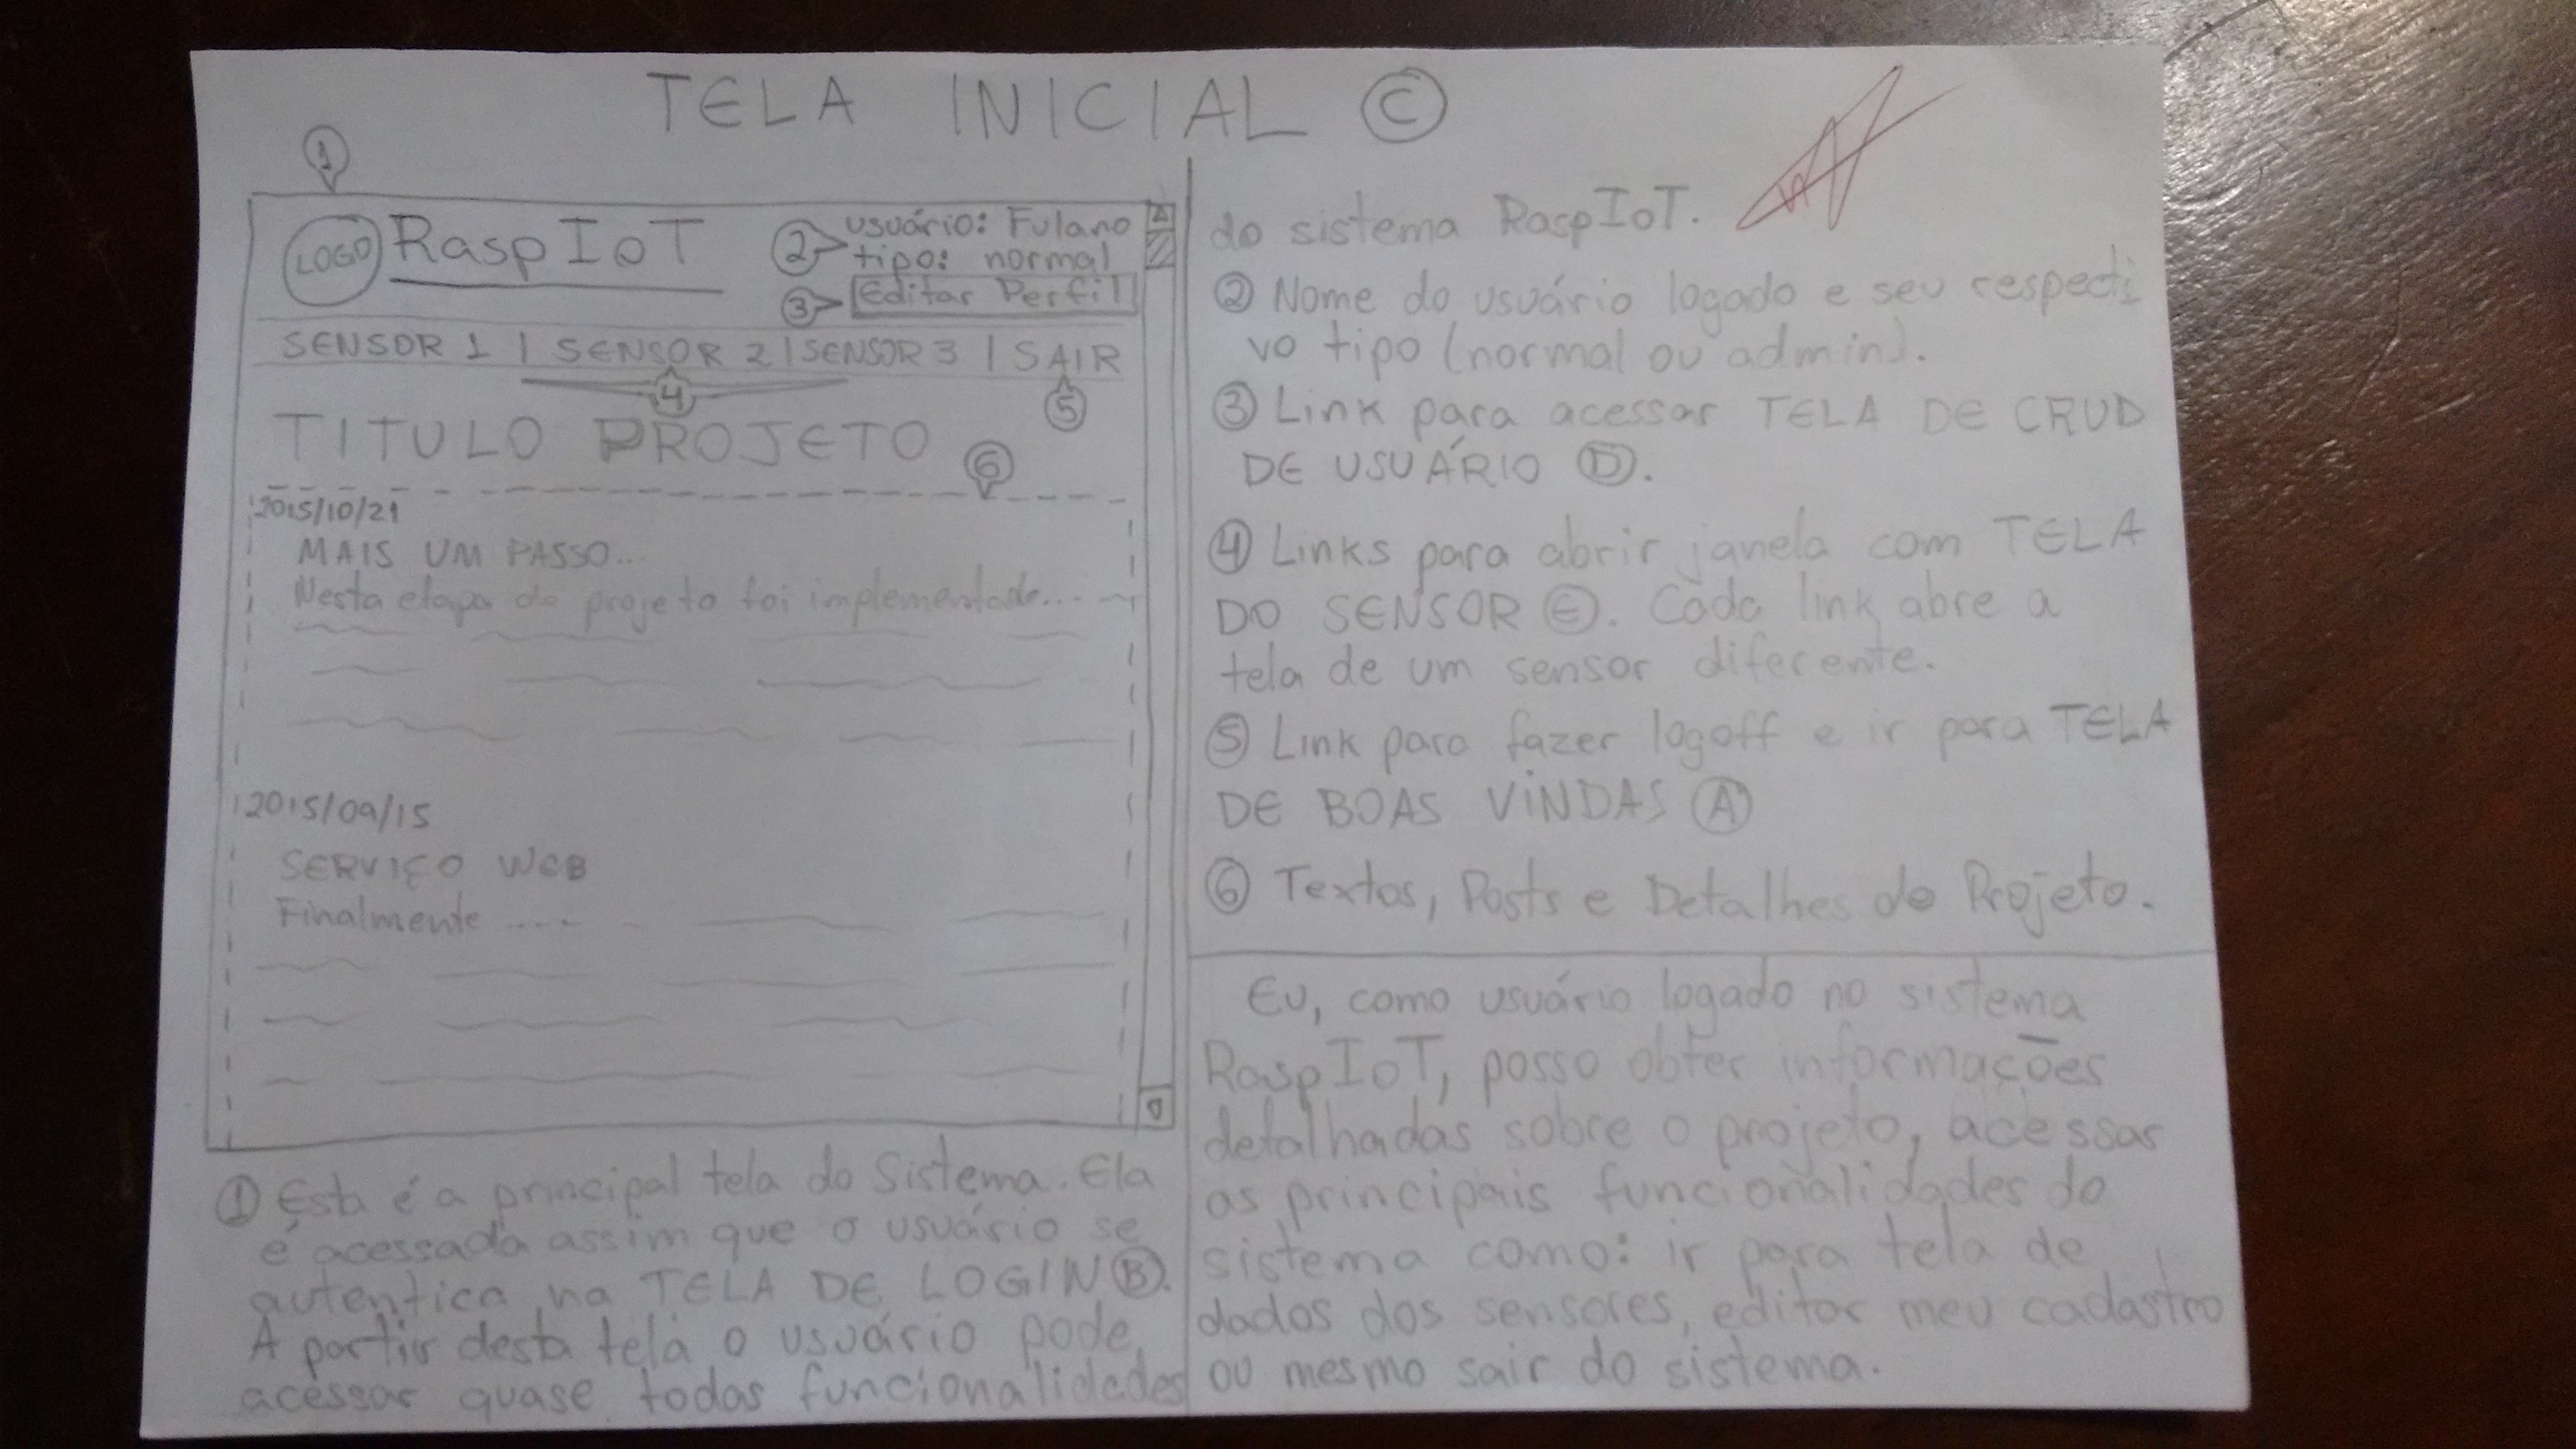 TELA INICIAL C
1
LOGO RaspIoT
2 usuário: Fulano
tipo: normal
3 Editar Perfil
SENSOR 1 | SENSOR 2 | SENSOR 3 | SAIR
4
5
TITULO PROJETO
6
2015/10/21
MAIS UM PASSO...
Nesta etapa do projeto foi implementado...
2015/09/15
SERVIÇO WEB
Finalmente ....
1 Esta é a principal tela do Sistema. Ela
é acessada assim que o usuário se
autentica na TELA DE LOGIN B.
A partir desta tela o usuário pode
acessar quase todas funcionalidades
do sistema RaspIoT.
2 Nome do usuário logado e seu respecti
vo tipo (normal ou admin).
3 Link para acessar TELA DE CRUD
DE USUÁRIO D.
4 Links para abrir janela com TELA
DO SENSOR E. Cada link abre a
tela de um sensor diferente.
5 Link para fazer logoff e ir para TELA
DE BOAS VINDAS A
6 Textos, Posts e Detalhes do Projeto.
Eu, como usuário logado no sistema
RaspIoT, posso obter informações
detalhadas sobre o projeto, acessar
as principais funcionalidades do
sistema como: ir para tela de
dados dos sensores, editar meu cadastro
ou mesmo sair do sistema.